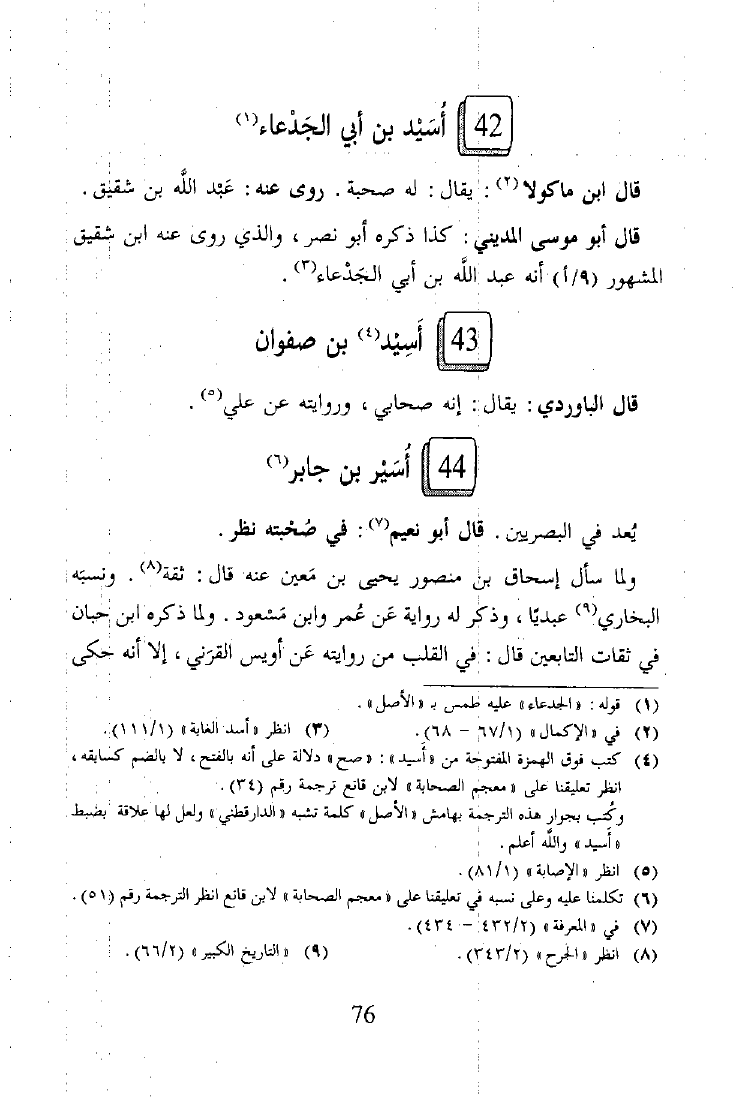 42 أُسَيْد بن أبي الجَدْعاء(١)
قال ابن ماكولا(٢) : يقال : له صحبة . روى عنه : عَبْد اللَّه بن شقيق .
قال أبو موسى المديني : كذا ذكره أبو نصر ، والذي روى عنه ابن شقيق
المشهور (٩/أ) أنه عبد اللَّه بن أبي الجَدْعاء(٣) .
43 أَسِيْد(٤) بن صفوان
قال الباوردي : يقال : إنه صحابي ، وروايته عن علي(٥) .
44 أُسَيْر بن جابر(٦)
يُعد في البصريين . قال أبو نعيم(٧) : في صُحْبته نظر .
ولما سأل إسحاق بن منصور يحيى بن مَعين عنه قال : ثقة(٨) . ونسبَه
البخاري(٩) عبديًا ، وذكر له رواية عَن عُمر وابن مَسْعود . ولما ذكره ابن حبان
في ثقات التابعين قال : في القلب من روايته عَن أويس القرَني ، إلا أنه حكى
(١) قوله : «الجدعاء» عليه طمس بـ «الأصل» .
(٢) في «الإكمال» (٦٧/١ – ٦٨) . (٣) انظر «أسد الغابة» (١١١/١) .
(٤) كتب فوق الهمزة المفتوحة من «أسيد» : «صح» دلالة على أنه بالفتح ، لا بالضم كسابقه ،
انظر تعليقنا على «معجم الصحابة» لابن قانع ترجمة رقم (٣٤) .
وكُتب بجوار هذه الترجمة بهامش «الأصل» كلمة تشبه «الدارقطني» ولعل لها علاقة بضبط
«أسيد» واللَّه أعلم .
(٥) انظر «الإصابة» (٨١/١) .
(٦) تكلمنا عليه وعلى نسبه في تعليقنا على «معجم الصحابة» لابن قانع انظر الترجمة رقم (٥١) .
(٧) في «المعرفة» (٤٣٢/٢ – ٤٣٤) .
(٨) انظر «الجرح» (٣٤٣/٢) . (٩) «التاريخ الكبير» (٦٦/٢) .
76